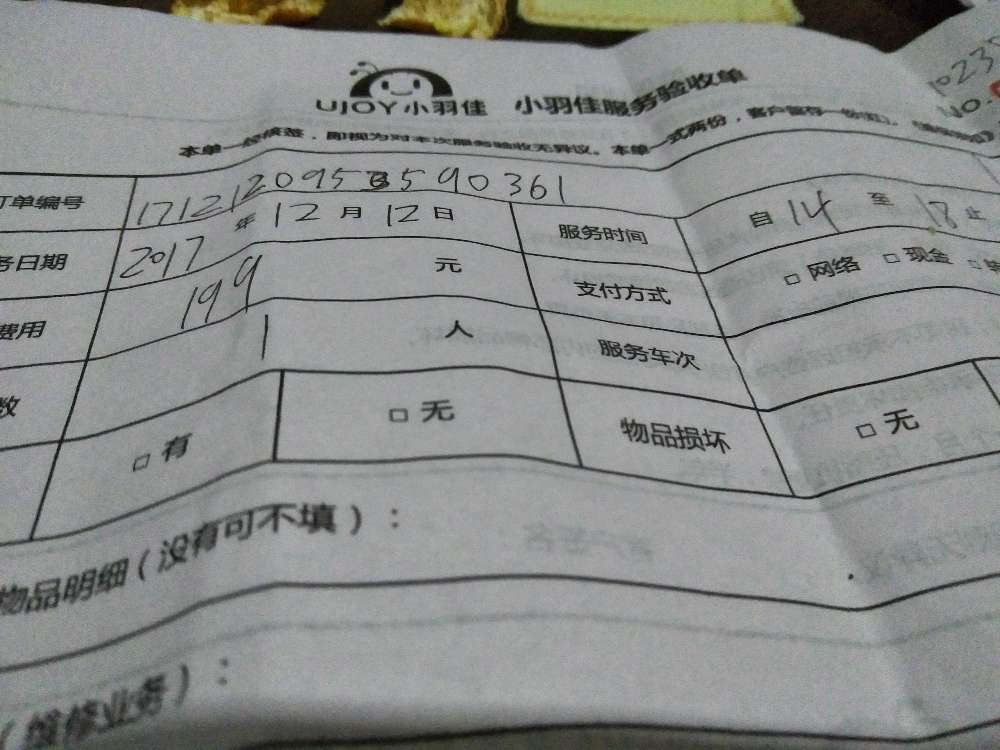 1023
NO.
UJOY小羽佳 小羽佳服务验收单
本单一经核签，即视为对本次服务验收无异议。本单一式两份，客户留存一份
订单编号 1712120953590361
务日期 2017年12月12日 服务时间 自14至18止
费用 199元 支付方式 □网络 □现金
数 1人 服务车次
□有 □无 物品损坏 □无
物品明细（没有可不填）：
（维修业务）：